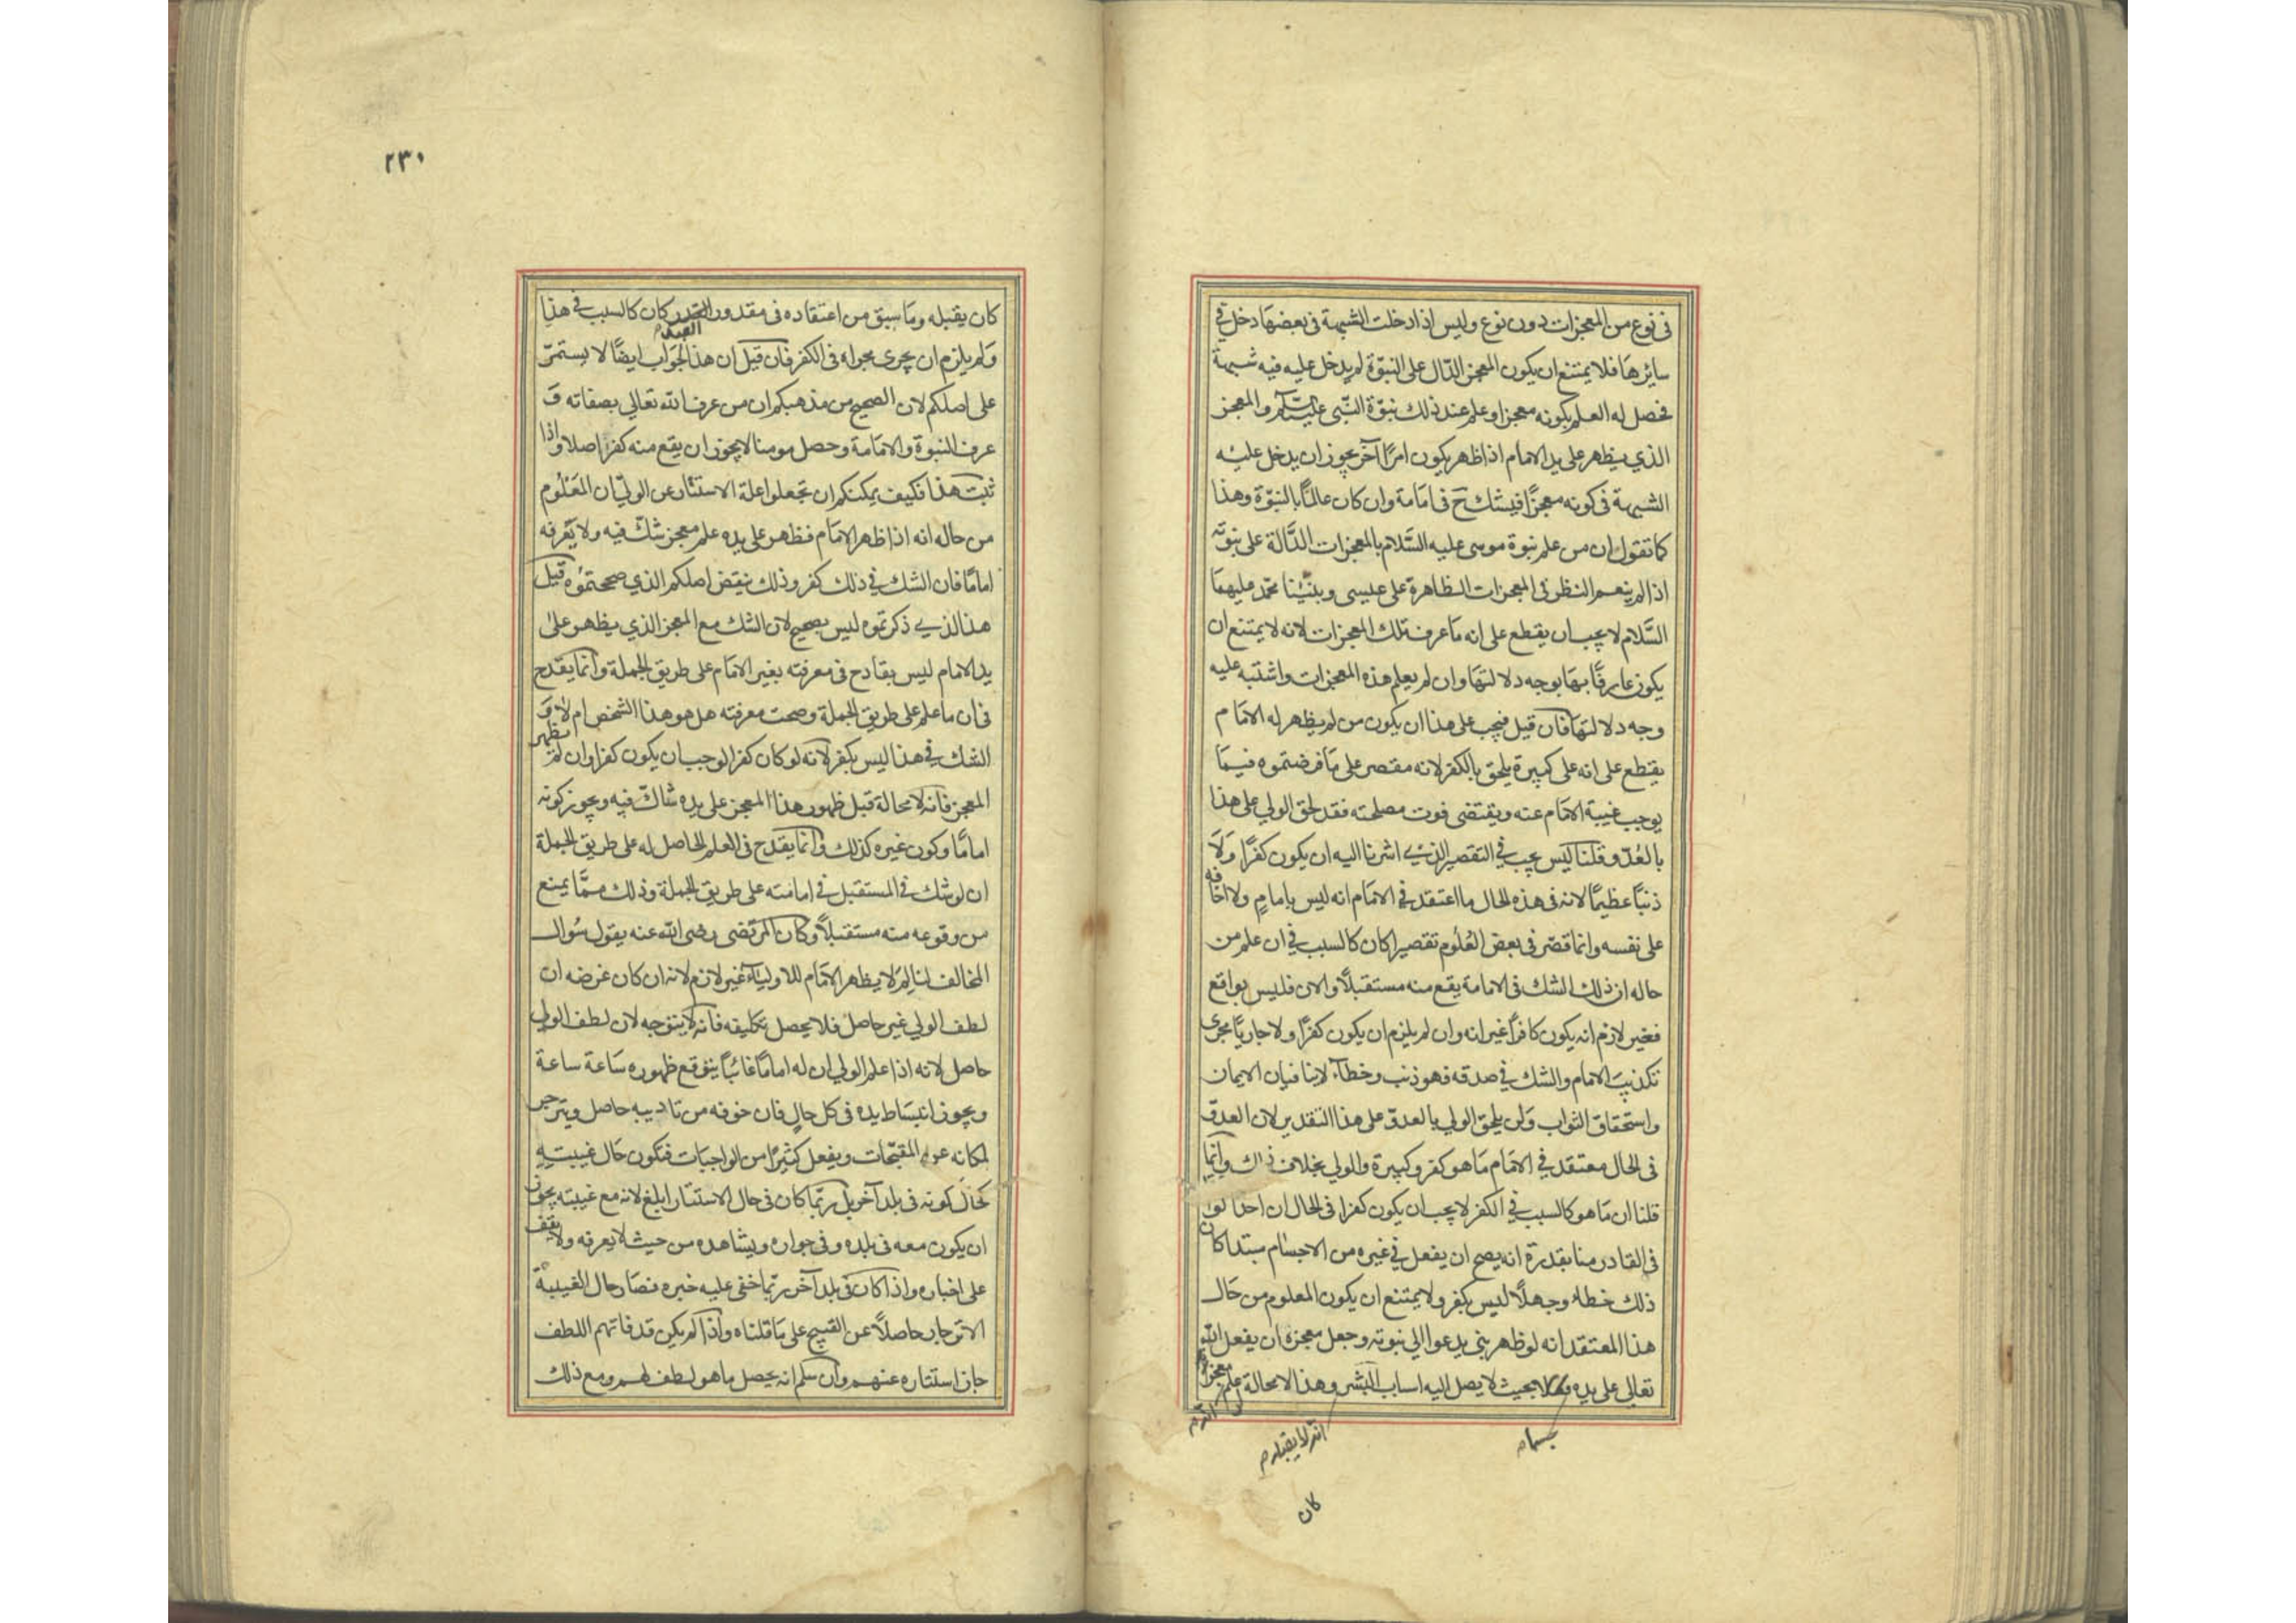 فى نوع من المعجزات دون نوع وليس اذا دخلت الشبهة فى بعضها دخل فى
سايرها فلا يمتنع ان يكون المعجز الدّال على النبوّة لم يدخل عليه فيه شبهة
فحصل له العلم بكونه معجزا وعلم عند ذلك نبوّة النّبى عليه السّلم والمعجز
الذي يظهر على يد الامام اذا ظهر يكون امرًا آخر يجوز ان يدخل عليه
الشبهة فى كونه معجزًا فيشك ح فى امامة وان كان عالمًا بالنبوّة وهذا
كما تقول ان من علم نبوة موسى عليه السَّلام بالمعجزات الدَّالة على نبوّته
اذا لم ينعم النظر فى المعجزات الظاهرة على عيسى ونبيّنا محمّد عليهما
السَّلام لا يجب ان يقطع على انه ما عرف تلك المعجزات لانه لا يمتنع ان
يكون عارفًا بها بوجه دلالتها وان لم يعلم هذه المعجزات واشتبه عليه
وجه دلالتها فان قيل فيجب على هذا ان يكون من لم يظهر له الامام
يقطع على انه على كبيرة يلحق بالكفر لانه مقتصر على ما فرضتموه فيما
يوجب غيبة الامام عنه ويقتضى فوت مصلحته فقد لحق الولي على هذا
بالعُدّو قلنا ليس يجب في التقصير الذي اشرنا اليه ان يكون كفرًا ولَا
ذنبًا عظيمًا لانه فى هذه الحال ما اعتقد في الامام انه ليس بامامٍ ولا اخافه
على نفسه وانما قصّر فى بعض العُلوم تقصيرا كان كالسبب في ان علم من
حاله ان ذلك الشك فى الامامة يقع منه مستقبلًا والان فليس بواقع
فغير لازم انه يكون كافراً غير انه وان لم يلزم ان يكون كفرًا ولا جاريًا مجرى
تكذيب الامام والشك في صدقه فهو ذنب وخطآء لا ينافيان الايمان
واستحقاق الثواب ولن يلحق الولي بالعدوّ على هذا التقدير لان العدوّ
فى الحال معتقد في الامام ما هو كفر وكبيرة والولي بخلاف ذلك وانّما
قلنا ان ما هو كالسبب في الكفر لا يجب ان يكون كفرا فى الحال ان احدا لو
فى القادر منا بقدرة انه يصح ان يفعل في غيره من الاجسام مبتدا كان
ذلك خطاء وجهلًا ليس بكفر ولا يمتنع ان يكون المعلوم من حال
هذا المعتقد انه لو ظهر بنى يدعوا الي نبوته وجعل معجزه ان يفعل الله
تعالى على يده بحيث لا يصل اليه اسباب البشر وهذا لا محالة علم معجز
انّه لا يقبله م
كان
٢٣١
كان يقبله وما سبق من اعتقاده فى مقدور القدر كان كالسبب في هذا
ولم يلزم ان يجرى مجراه فى الكفر فان قيل ان هذا الجواب ايضًا لا يستمرّ
على اصلكم لان الصحيح من مذهبكم ان من عرف الله تعالى بصفاته و
عرف النبوة والامامة وحصل مومنا لا يجوز ان يقع منه كفر اصلا واذا
ثبت هذا فكيف يمكنكم ان تجعلوا علة الاستتار عن الولي ان المَعْلُوم
من حاله انه اذا ظهر الامام فظهر على يده علم معجز شكّ فيه ولا يعرفه
امامًا فان الشك في ذلك كفر وذلك ينقض اصلكم الذي صححتموُه قيل
هذا الذي ذكرتموه ليس بصحيح لان الشك مع المعجز الذي يظهر على
يد الامام ليس بقادح فى معرفته بغير الامام على طريق الجملة وانّما يقدح
فى ان ما علم على طريق الجملة وصحت معرفته هل هو هذا الشخص ام لا و
الشك في هذا ليس بكفر لانه لو كان كفرا لوجب ان يكون كفرا وان لم يظهر
المعجز فانه لا محالة قبل ظهور هذا المعجز على يده شاكّ فيه ويجوز كونه
امامًا وكون غيره كذلك وانّما يقدح فى العلم الحاصل له على طريق الجملة
ان لو شك في المستقبل في امامته على طريق الجملة وذلك ممَّا يمنع
من وقوعه منه مستقبلًا وكان المرتضى رضى الله عنه يقول سُوال
المخالف لنا لِمَ لا يظهر الامام للاولياء غير لازم لانه ان كان غرضه ان
لطف الولي غير حاصل فلا يحصل تكليفه فانه لا يتوجه لان لطف الولي
حاصل لانه اذا علم الولي ان له امامًا غائبًا يتوقع ظهوره ساعة ساعة
ويجوز انبساط يده فى كل حالٍ فان خوفه من تاديبه حاصل وينزجر
لمكانه عن المقبّحات ويفعل كثيرًا من الواجبات فتكون حال غيبته
كحال كونه فى بلد آخر بل ربّما كان فى حال الاستتار ابلغ لانه مع غيبته يجوز
ان يكون معه فى بلده وفى جواره ويشاهده من حيث لا يعرفه ولا يقف
على اخباره واذا كان فى بلد آخر ربّما خفى عليه خبره فصار حال الغيبة
الانزجار حاصلًا عن القبيح على ما قلناه واذا لم يكن قد فاتهم اللطف
جاز استتاره عنهم وان سلم انه يحصل ما هو لطف لهم ومع ذلك